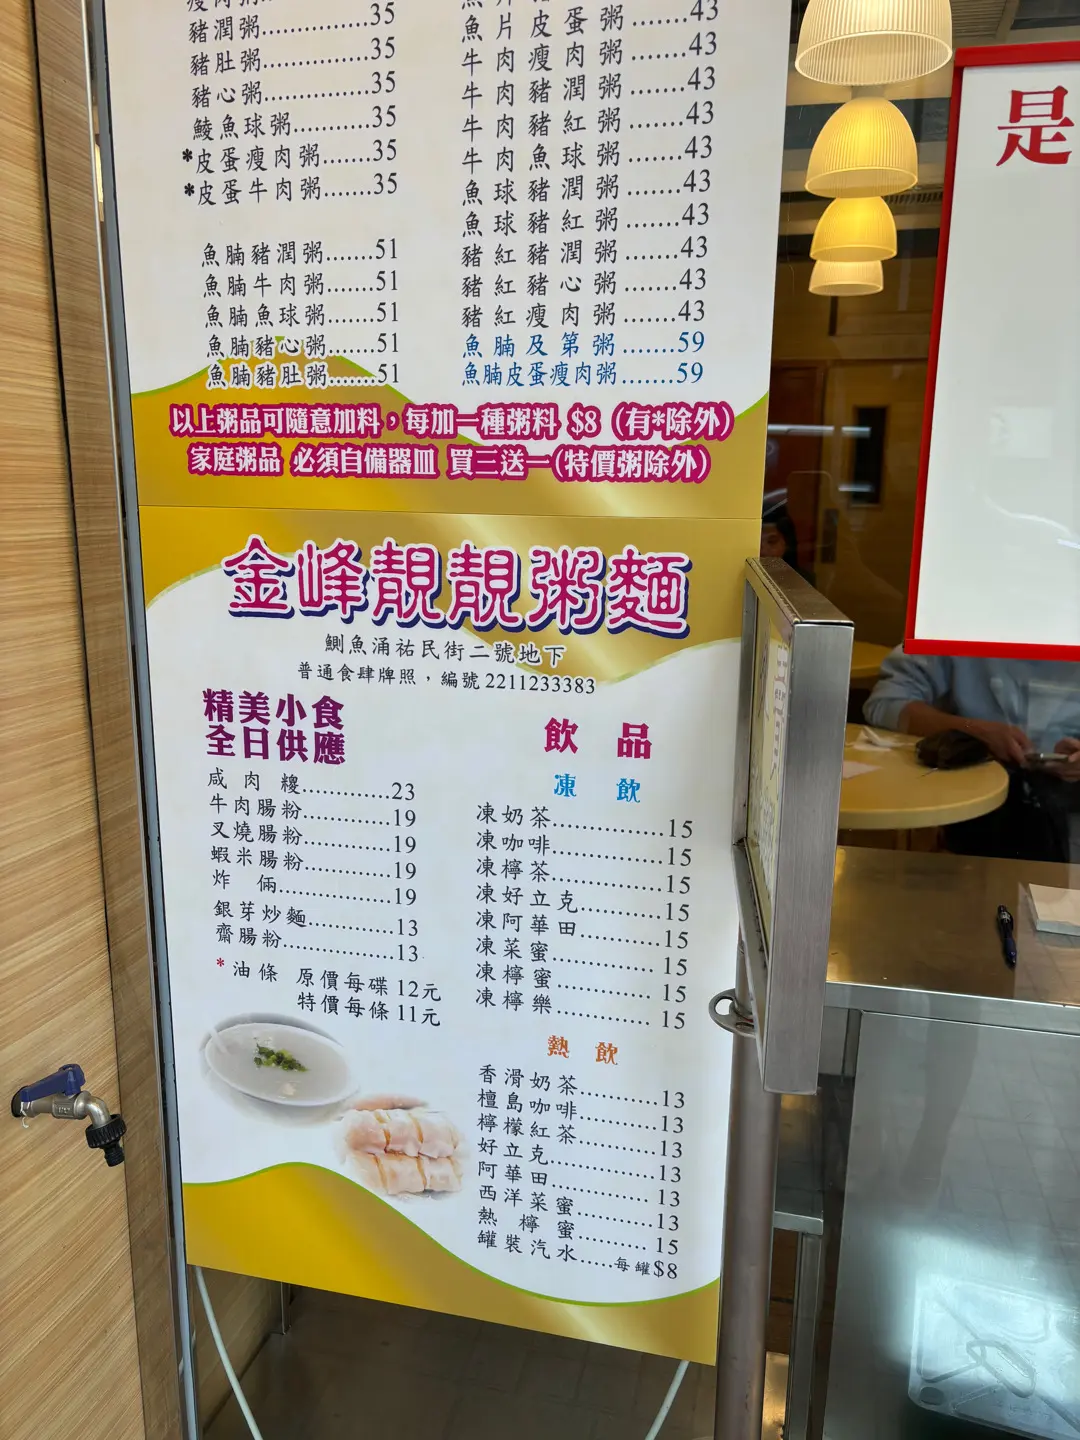 瘦肉粥............35
豬潤粥............35
豬肚粥............35
豬心粥............35
鯪魚球粥..........35
*皮蛋瘦肉粥.......35
*皮蛋牛肉粥.......35
魚腩豬潤粥.......51
魚腩牛肉粥.......51
魚腩魚球粥.......51
魚腩豬心粥.......51
魚腩豬肚粥.......51
魚片皮蛋粥.......43
牛肉瘦肉粥.......43
牛肉豬潤粥.......43
牛肉豬紅粥.......43
牛肉魚球粥.......43
魚球豬潤粥.......43
魚球豬紅粥.......43
豬紅豬潤粥.......43
豬紅豬心粥.......43
豬紅瘦肉粥.......43
魚腩及第粥.......59
魚腩皮蛋瘦肉粥.......59
以上粥品可隨意加料，每加一種粥料 $8 (有*除外)
家庭粥品 必須自備器皿 買三送一(特價粥除外)
金峰靚靚粥麵
鰂魚涌祐民街二號地下
普通食肆牌照，編號 2211233383
精美小食
全日供應
咸肉糭.............23
牛肉腸粉.............19
叉燒腸粉.............19
蝦米腸粉.............19
炸 倆.............19
銀芽炒麵.............13
齋腸粉.............13
*油條 原價每碟 12元
特價每條 11元
飲品
凍飲
凍奶茶.............15
凍咖啡.............15
凍檸茶.............15
凍好立克.............15
凍阿華田.............15
凍菜蜜.............15
凍檸蜜.............15
凍檸樂.............15
熱飲
香滑奶茶.............13
檀島咖啡.............13
檸檬紅茶.............13
好立克.............13
阿華田.............13
西洋菜蜜.............13
熱檸蜜.............15
罐裝汽水.....每罐$8
是